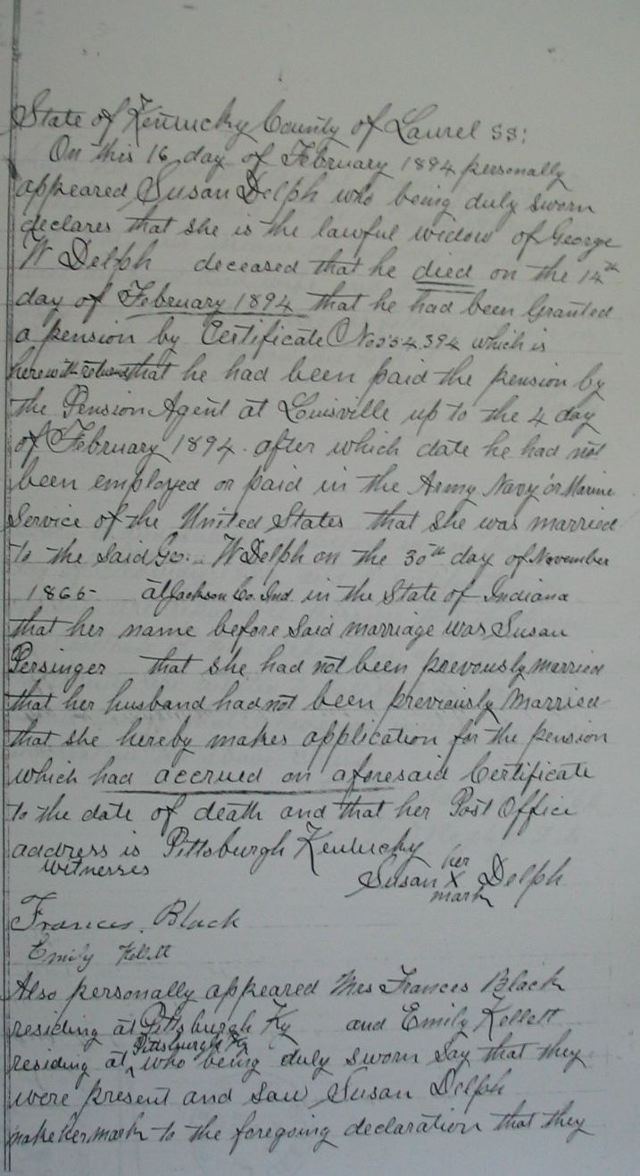 State of Kentucky County of Laurel SS:
On this 16 day of February 1894 personally
appeared Susan Delph who being duly sworn
declares that she is the lawful widow of George
W Delph deceased that he died on the 14th
day of February 1894 that he had been Granted
a pension by Certificate No 334394 which is
herewith returned that he had been paid the pension by
the Pension Agent at Louisville up to the 4 day
of February 1894. after which date he had not
been employed or paid in the Army Navy or Marine
Service of the United States that she was married
to the said Geo. W Delph on the 30th day of November
1865 at Jackson Co. Ind in the State of Indiana
that her name before said marriage was Susan
Persinger that she had not been prevously married
that her husband had not been previously Married
that she hereby makes application for the pension
which had accrued on aforesaid Certificate
to the date of death and that her Post Office
address is Pittsburgh Kentucky
witnesses
her
Susan X Delph
mark
Frances. Black
Emily Kellett
Also personally appeared Mrs Frances Black
residing at Pittsburgh Ky and Emily Kellett
residing at Pittsburgh Ky who being duly sworn say that they
were present and saw Susan Delph
make her mark to the foregoing declaration that they